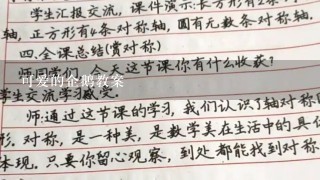 学生汇报交流，课件演示:长方形有2条
轴，正方形有4条对称轴，圆有无数条对称轴.
四.全课总结(赏对称)
师:同 今天这节课你有什么收获?
可爱的企鹅教案
学生交流学习
师:通过这节课的学习，我们认识了轴对称图
形.对称，是一种美，是数学美在生活中的具
体现.只要你留心观察，到处都能找到对称